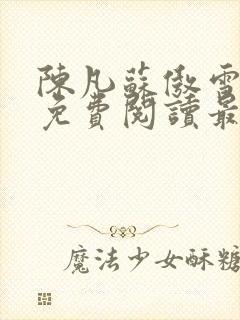 陳凡蘇傲雪
免費閱讀最
魔法少女酥糖